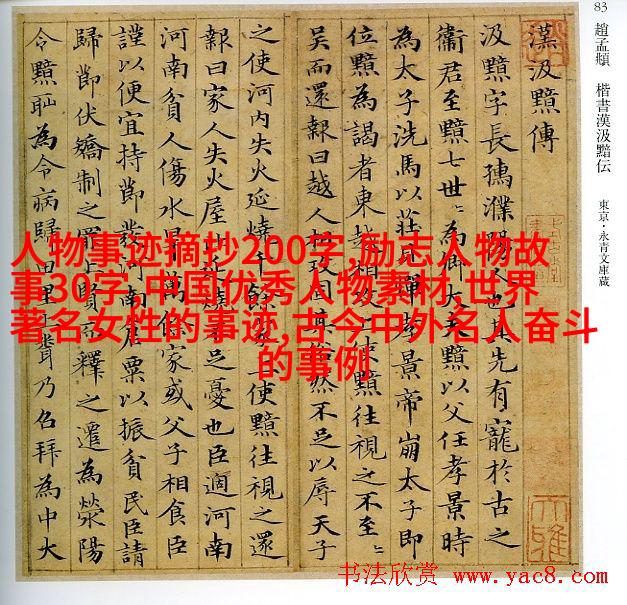 83
趙孟頫 楷書漢汲黯伝 東京·永青文庫蔵
漢汲黯傳
汲黯字長孺濮陽人也其先有寵於古之
衛君至黯七世〻為卿大夫黯以父任孝景時
為太子洗馬以莊見憚孝景帝崩太子即
位黯為謁者東越相攻上使黯往視之不至〻
吳而還報曰越人相攻固其俗然不足以辱天子
之使河内失火延燒千餘家上使黯往視之還
報曰家人失火屋比延燒不足憂也臣過河南
河南貧人傷水旱萬餘家或父子相食臣
謹以便宜持節發河南倉粟以振貧民臣請
歸節伏矯制之罪上賢而釋之遷為滎陽
令黯恥為令病歸田里上聞乃召拜為中大
人物事迹摘抄200字,励志人物故
事30字,中国优秀人物素材,世界
著名女性的事迹,古今中外名人奋斗
的事例
书法欣赏 www.yac8.com